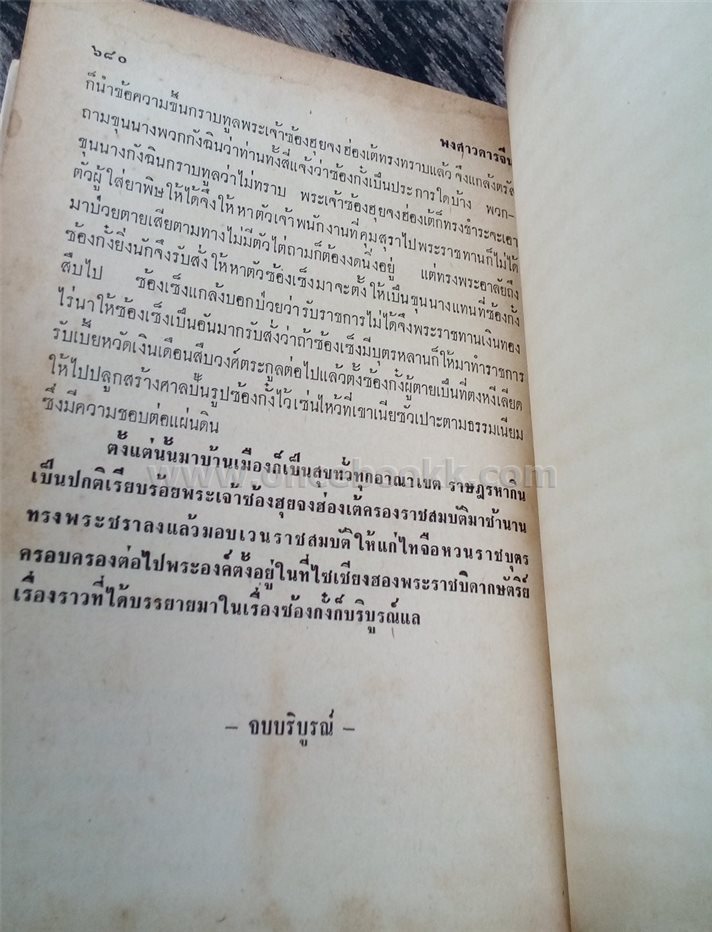 ๖๘๐
พงศาวดารจีน
ก็นำข้อความขึ้นกราบทูลพระเจ้าซ้องฮุยจงฮ่องเต้ทรงทราบแล้ว จึงแกล้งตรัส
ถามขุนนางพวกกังฉินว่าท่านทั้งสี่แจ้งว่าซ้องกั๋งเป็นประการใดบ้าง พวก-
ขุนนางกังฉินกราบทูลว่าไม่ทราบ พระเจ้าซ้องฮุยจงฮ่องเต้ก็ทรงชำระจะเอา
ตัวผู้ใส่ยาพิษให้ได้จึงให้หาตัวเจ้าพนักงานที่คุมสุราไปพระราชทานก็ไม่ได้
มาป่วยตายเสียตามทางไม่มีตัวไต่ถามก็ต้องงดนิ่งอยู่ แต่ทรงพระอาลัยถึง
ซ้องกั๋งยิ่งนักจึงรับสั่งให้หาตัวซ้องเซ็งมาจะตั้งให้เป็นขุนนางแทนที่ซ้องกั๋ง
สืบไป ซ้องเซ็งแกล้งบอกป่วยว่ารับราชการไม่ได้จึงพระราชทานเงินทอง
ไร่นาให้ซ้องเซ็งเป็นอันมากรับสั่งว่าถ้าซ้องเซ็งมีบุตรหลานก็ให้มาทำราชการ
รับเบี้ยหวัดเงินเดือนสืบวงศ์ตระกูลต่อไปแล้วตั้งซ้องกั๋งผู้ตายเป็นที่ตงหงีเลียด
ให้ไปปลูกสร้างศาลปั้นรูปซ้องกั๋งไว้เซ่นไหว้ที่เขาเนียซัวเปาะตามธรรมเนียม
ซึ่งมีความชอบต่อแผ่นดิน
ตั้งแต่นั้นมาบ้านเมืองก็เป็นสุขทั่วทุกอาณาเขต ราษฎรหากิน
เป็นปกติเรียบร้อยพระเจ้าซ้องฮุยจงฮ่องเต้ครองราชสมบัติมาช้านาน
ทรงพระชราลงแล้วมอบเวนราชสมบัติให้แก่ไทจือหวนราชบุตร
ครอบครองต่อไปพระองค์ตั้งอยู่ในที่ไซเซียงฮองพระราชบิดากษัตริย์
เรื่องราวที่ได้บรรยายมาในเรื่องซ้องกั๋งก็บริบูรณ์แล
– จบบริบูรณ์ –